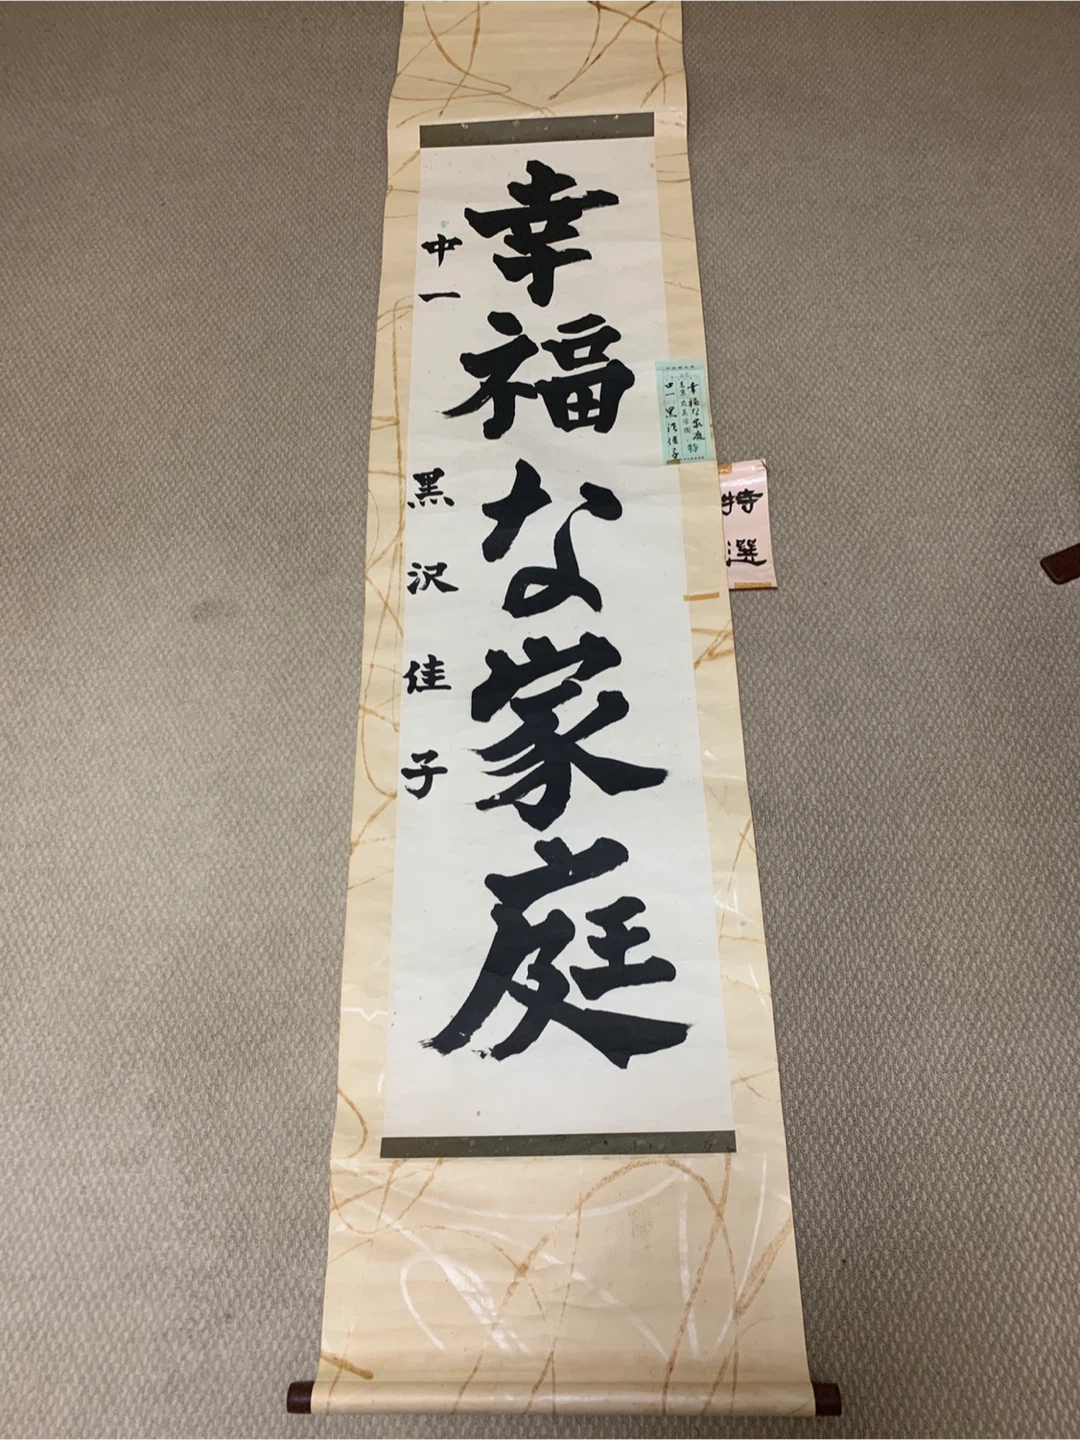 幸福な家庭
中一 黒沢佳子
幸福な家庭 特
中一 黒沢佳子
特選